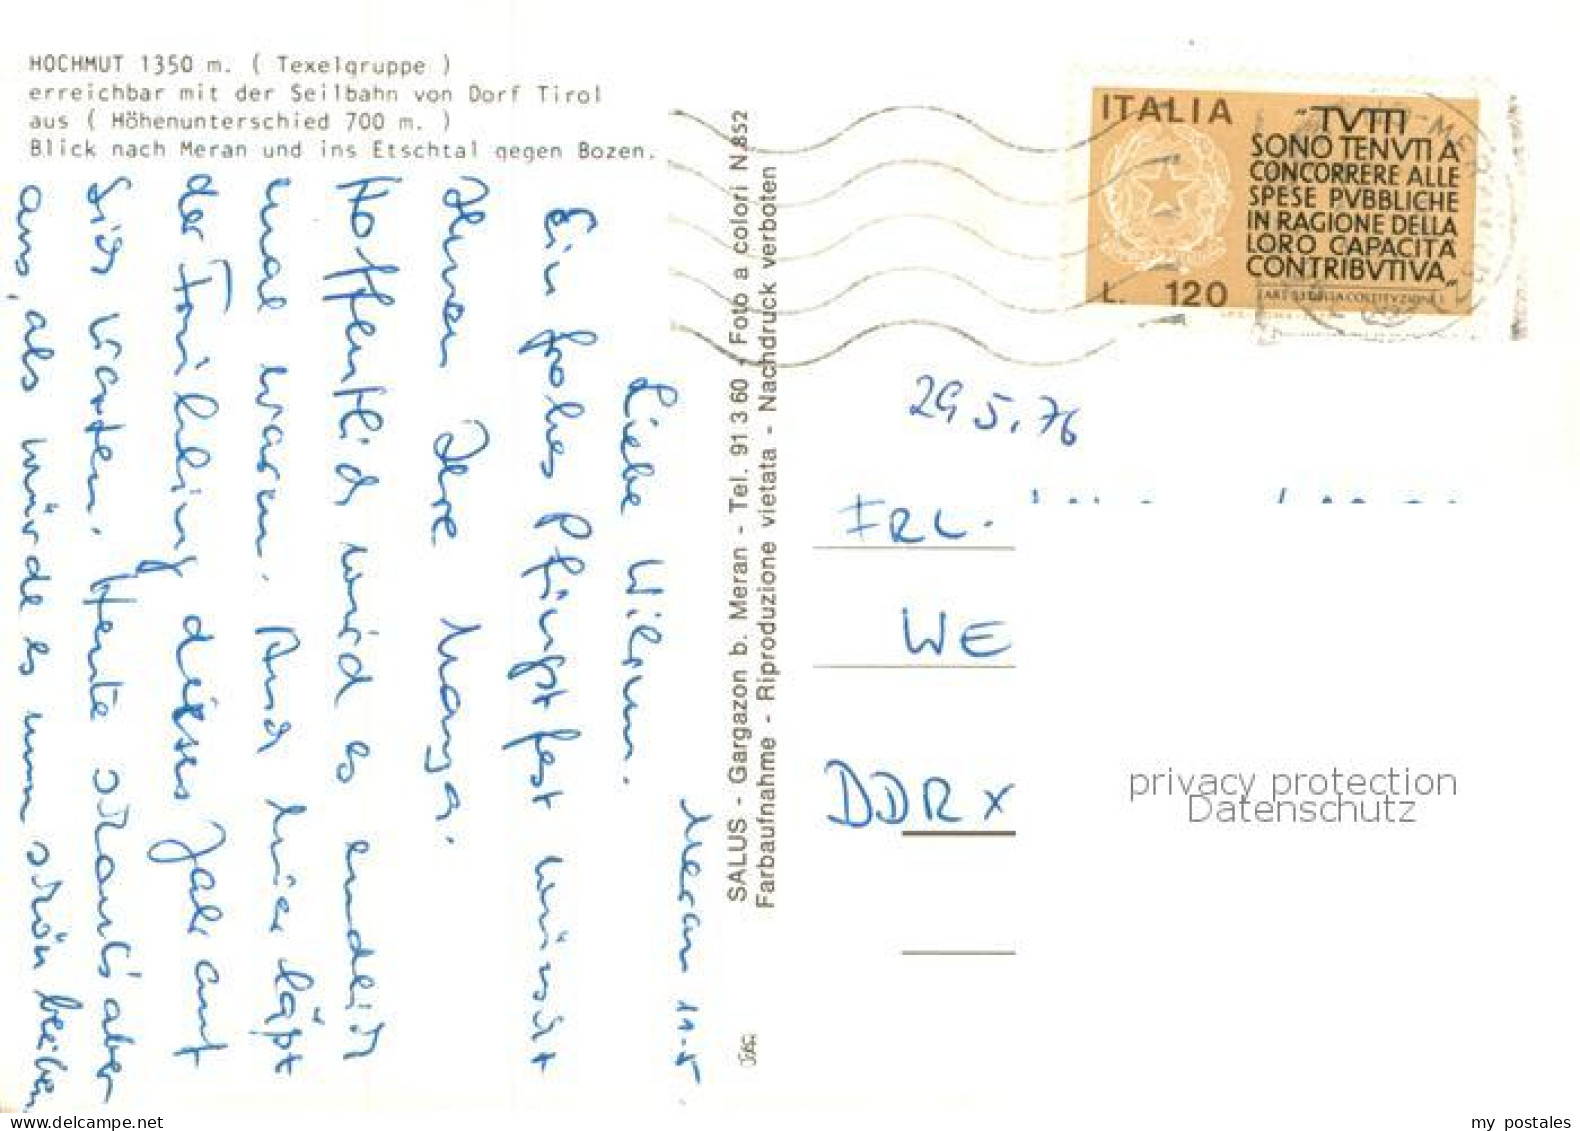 HOCHMUT 1350 m. ( Texelgruppe )
erreichbar mit der Seilbahn von Dorf Tirol
aus ( Höhenunterschied 700 m. )
Blick nach Meran und ins Etschtal gegen Bozen.
Meran 11.5.
Liebe Wilrun.
Ein frohes Pfingstfest wünscht
Ihnen Ihre Marga.
Hoffentlich wird es endlich
mal warm. Auch hier läßt
der Frühling dieses Jahr auf
sich warten. Heute schaut's aber
aus, als würde es nun schön bleiben
SALUS - Gargazon b. Meran - Tel. 91 3 60 - Foto a colori N.852
Farbaufnahme - Riproduzione vietata - Nachdruck verboten
ITALIA
"TVTTI
SONO TENVTI A
CONCORRERE ALLE
SPESE PVBBLICHE
IN RAGIONE DELLA
LORO CAPACITÀ
CONTRIBVTIVA"
(ART. 53 DELLA COSTITVZIONE)
L. 120
29 5. 76
FRL.
WE
DDR X
privacy protection
Datenschutz
www.delcampe.net
my postales